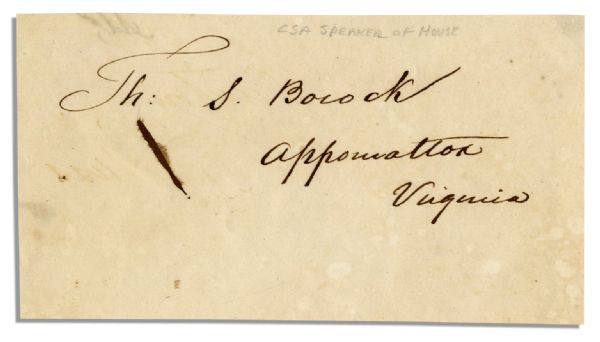 CSA SPEAKER OF HOUSE
Th: S. Bocock
Appomattox
Virginia